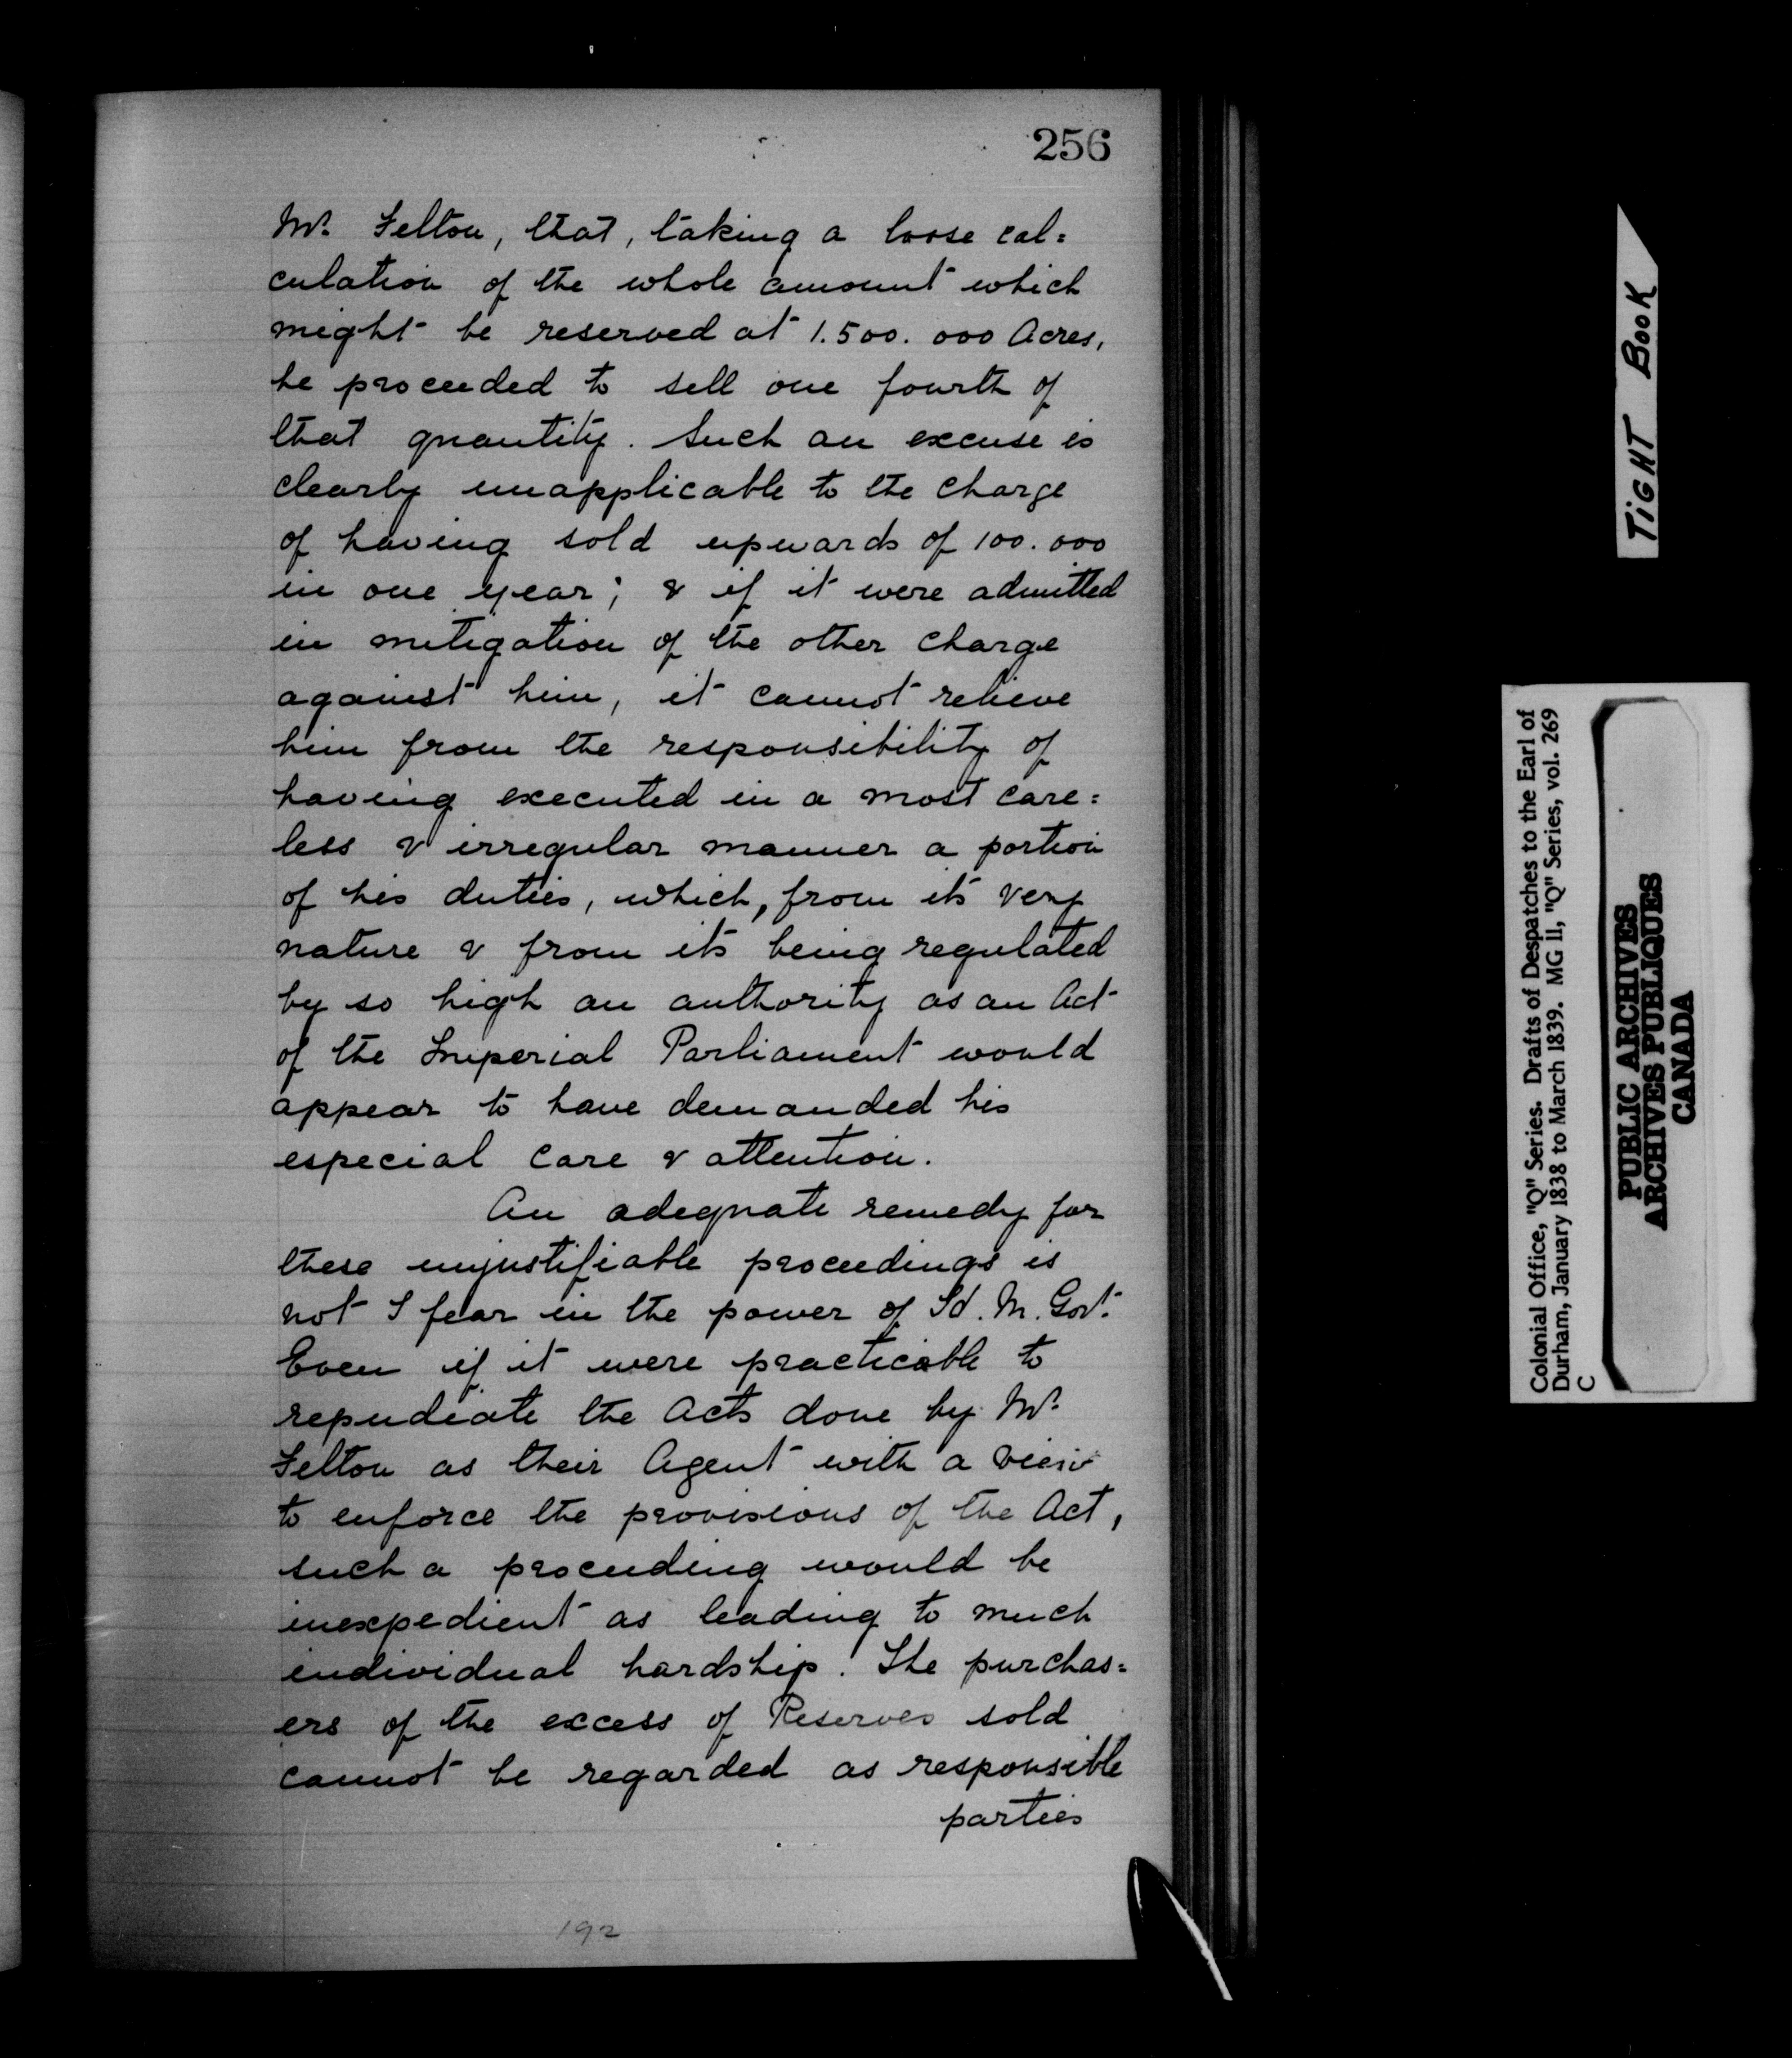 256
Mr. Felton, that, taking a loose cal=
culation of the whole amount which
might be reserved at 1.500.000 Acres,
he proceeded to sell one fourth of
that quantity. Such an excuse is
clearly unapplicable to the charge
of having sold upwards of 100.000
in one year; & if it were admitted
in mitigation of the other charge
against him, it cannot relieve
him from the responsibility of
having executed in a most care=
less & irregular manner a portion
of his duties, which, from its very
nature & from its being regulated
by so high an authority as an Act
of the Imperial Parliament would
appear to have demanded his
especial care & attention.
An adequate remedy for
these unjustifiable proceedings is
not I fear in the power of M. Govt.
Even if it were practicable to
repudiate the Acts done by Mr.
Felton as their Agent with a view
to enforce the provisions of the Act,
such a proceeding would be
inexpedient as leading to much
individual hardship. The purchas=
ers of the excess of Reserves sold
cannot be regarded as responsible
parties
192
TIGHT BOOK
Colonial Office, "Q" Series. Drafts of Despatches to the Earl of
Durham, January 1838 to March 1839. MG 11, "Q" Series, vol. 269
C
PUBLIC ARCHIVES
ARCHIVES PUBLIQUES
CANADA